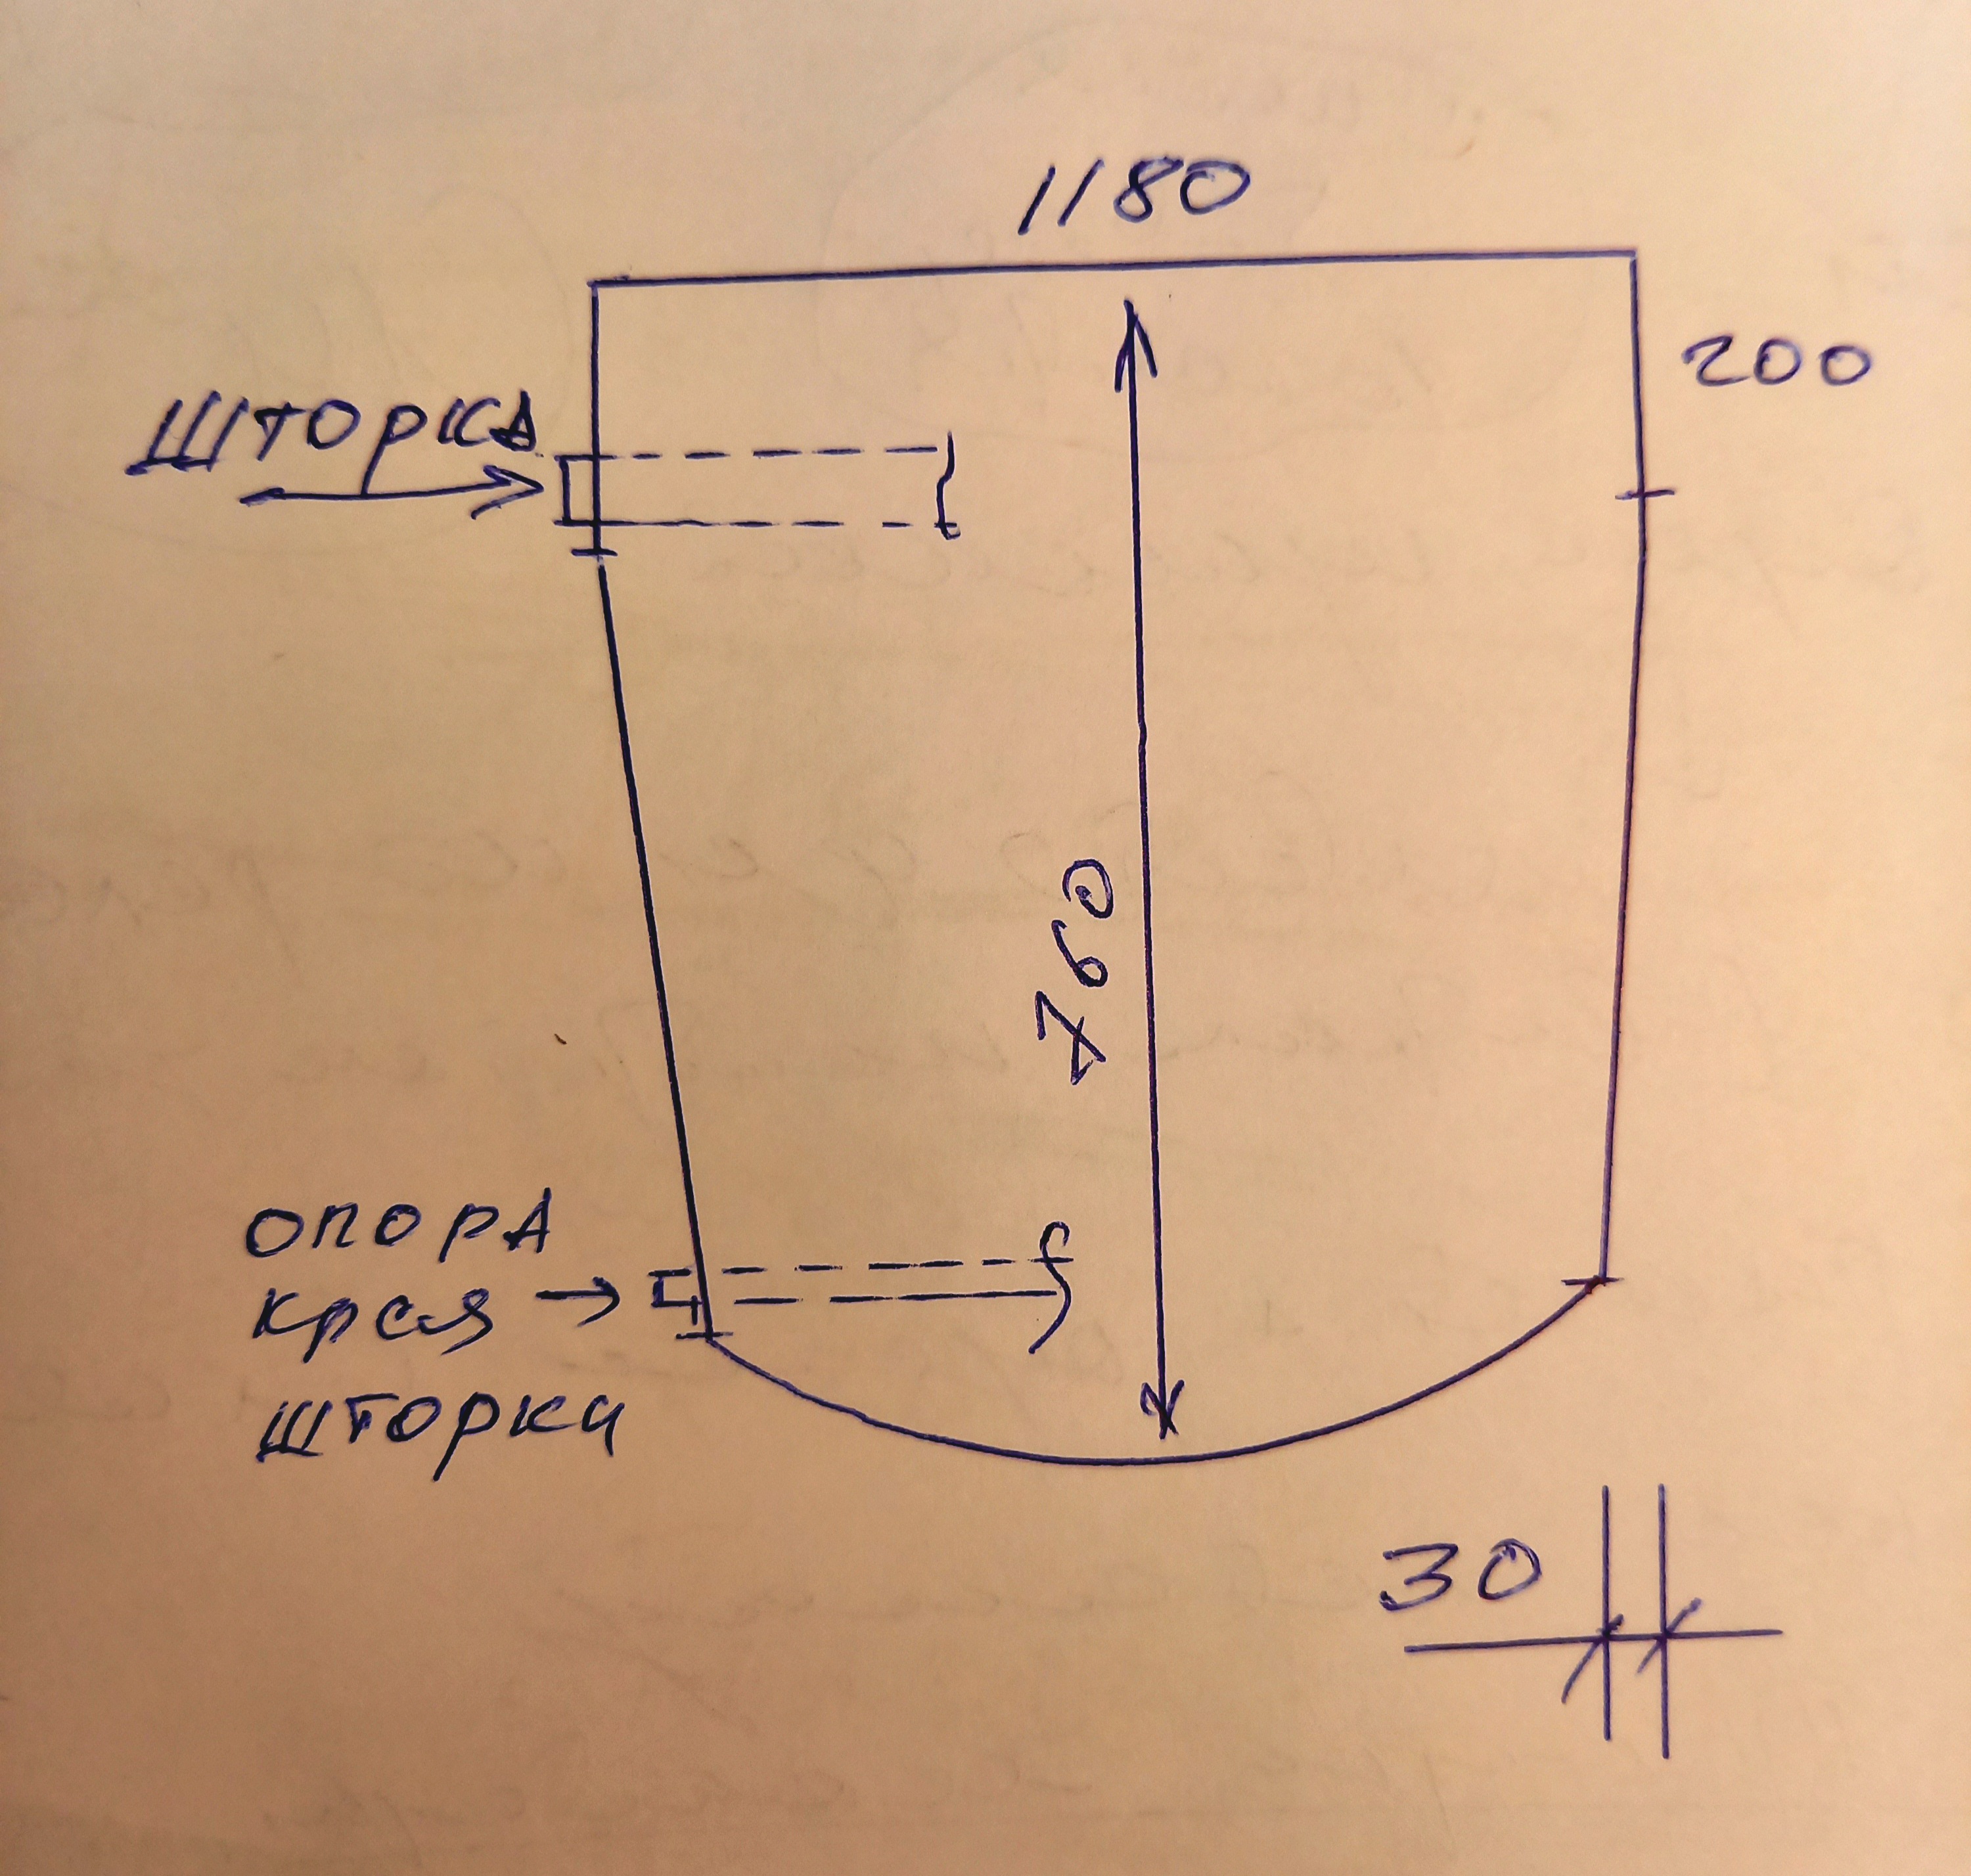 1180
200
ШТОРКА
760
ОПОРА
КРАЯ
ШТОРКИ
30